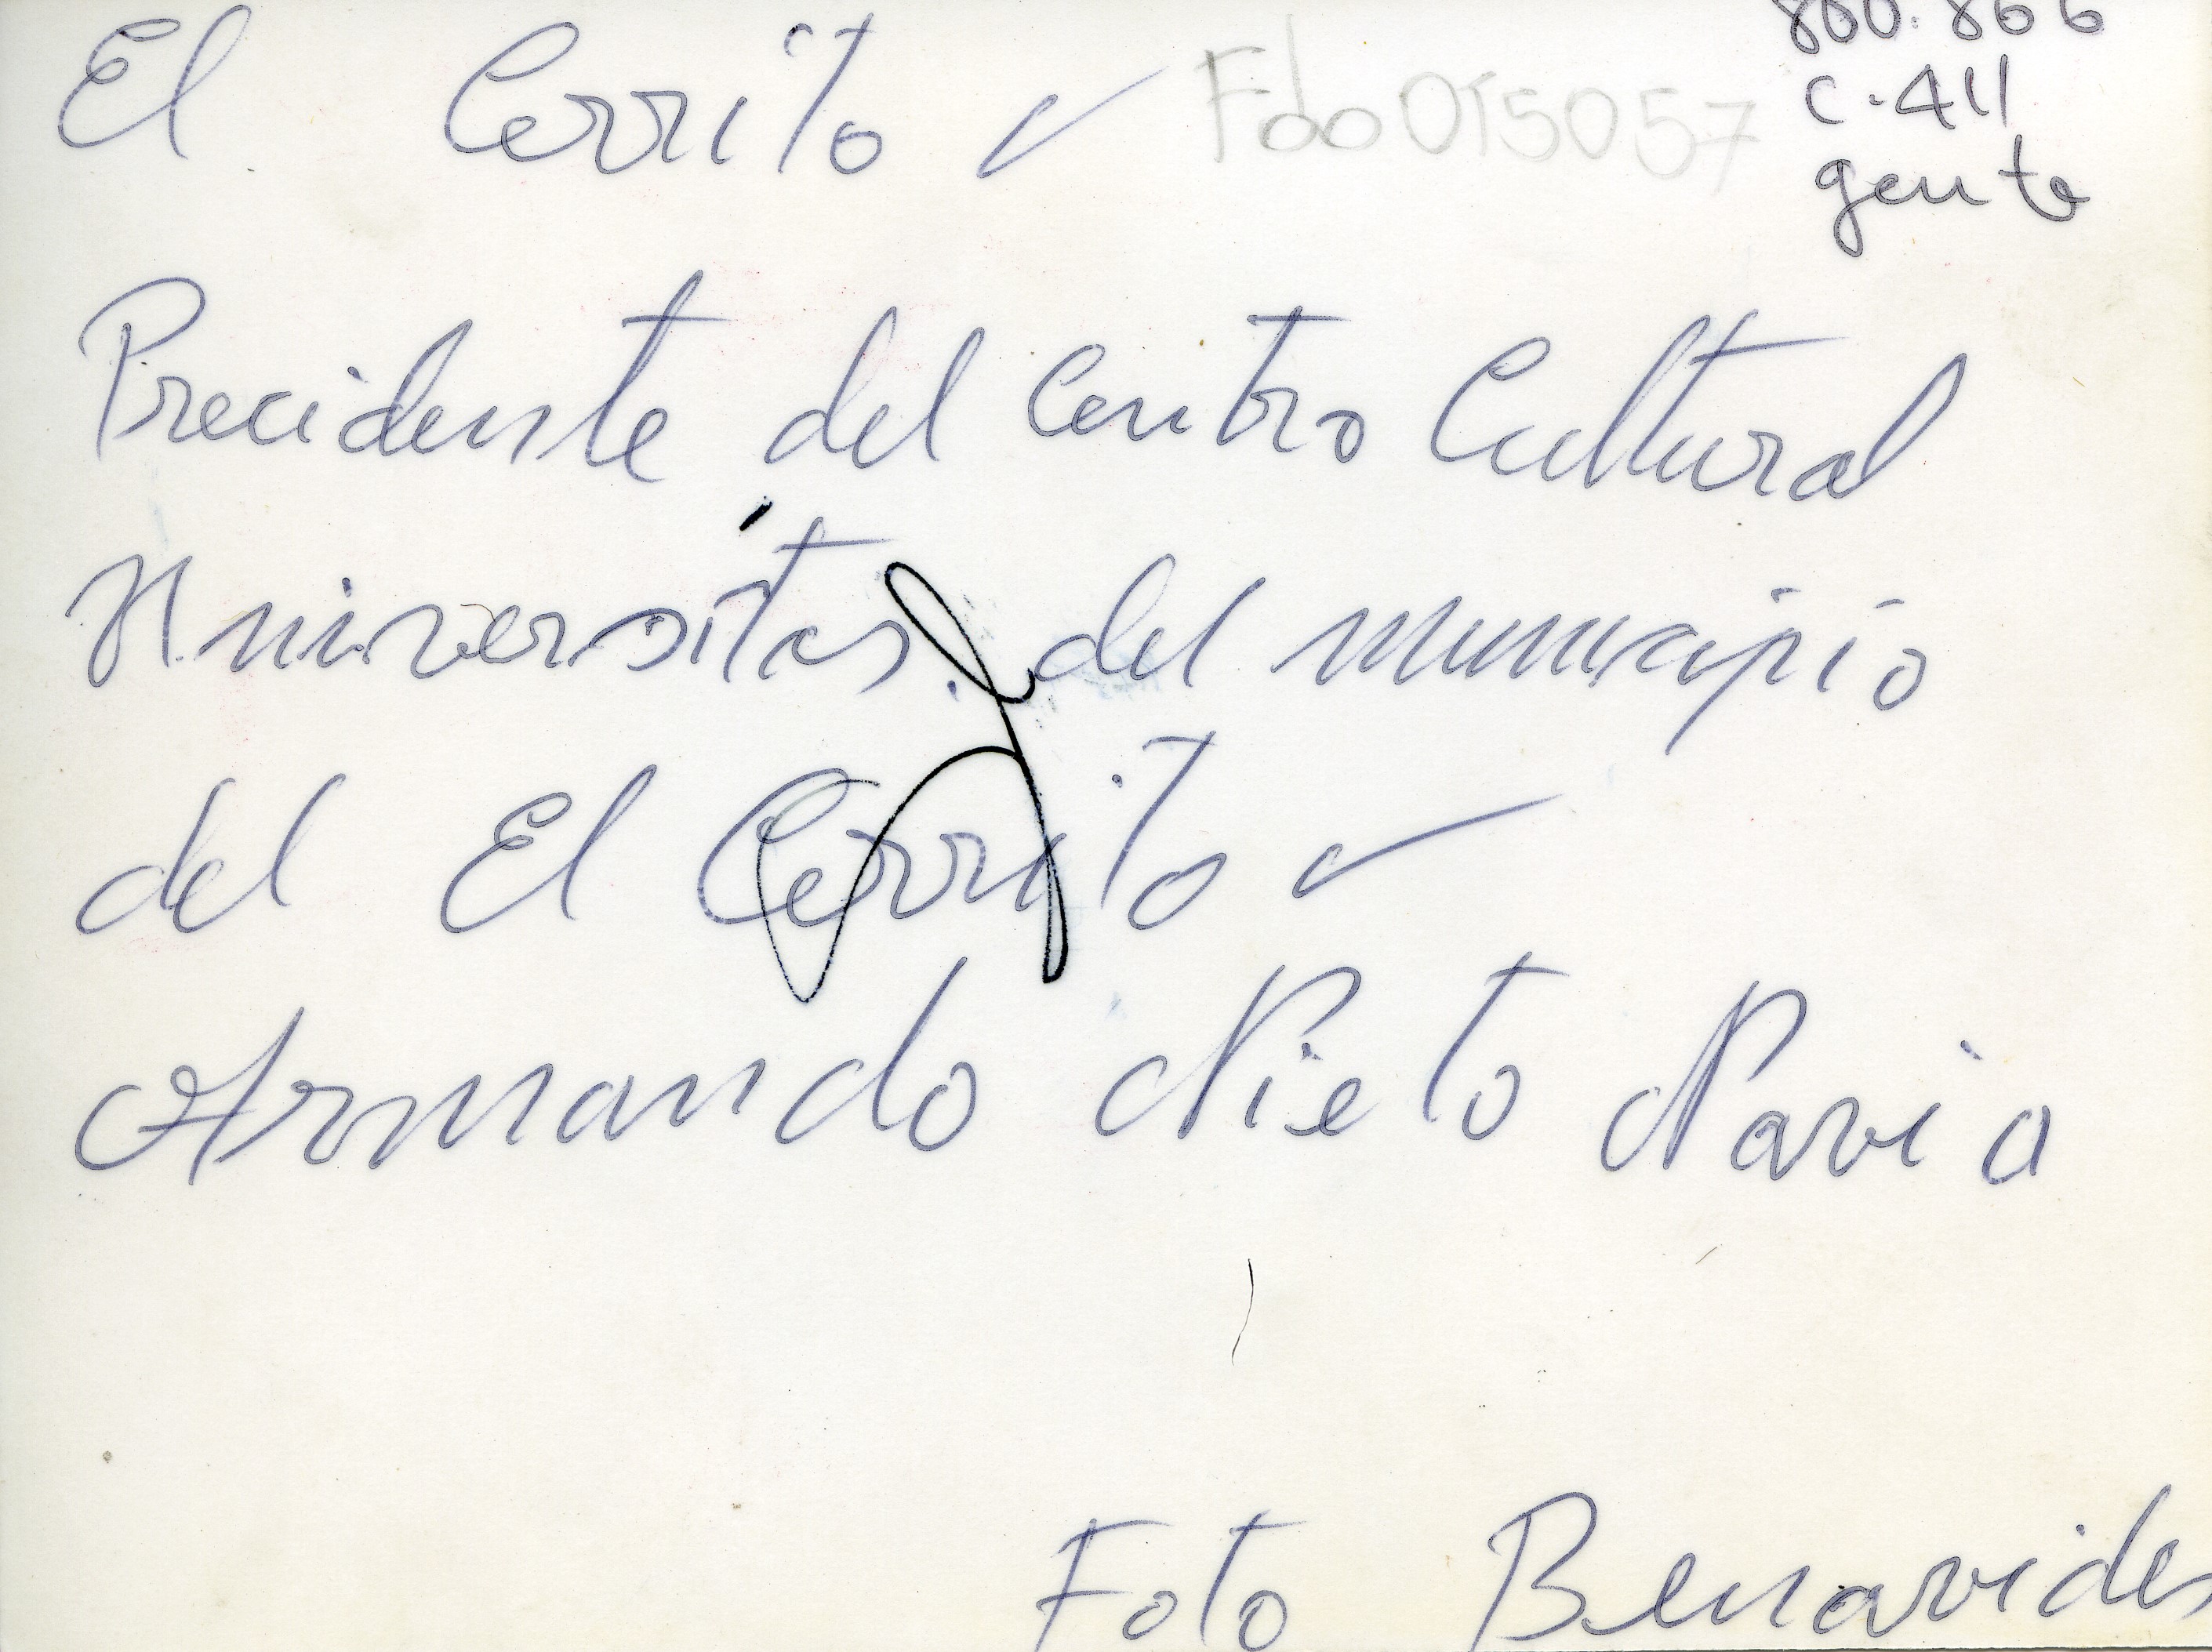 El Cerrito ✓ Fdo015057
800.866
C.411
gente
Precidente del Centro Cultural
Universitas del municipio
del El Cerrito ✓
Armando Nieto Navia
Foto Benavides